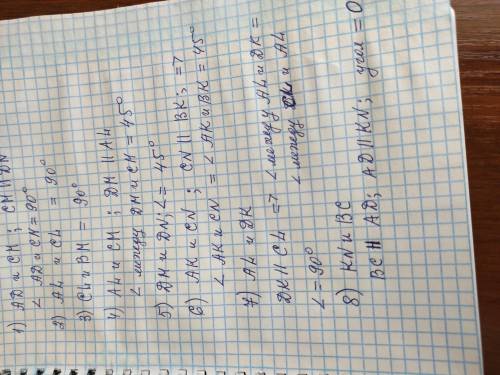 1) AD и CM; CM || DN
∠ AD и CN = 90°
2) AL и CL = 90°
3) CL и BM = 90°
4) AL и CM; DM || AL
∠ между DM и CM = 45°
5) DM и DN; ∠ = 45°
6) AK и CN; CN || BK; =>
∠ AK и CN = ∠ AK и BK = 45°
7) AL и DK
DK || CL => ∠ между AL и DK =
∠ между CL и AL
∠ = 90°
8) KN и BC
BC || AD; AD || KN; угол = 0